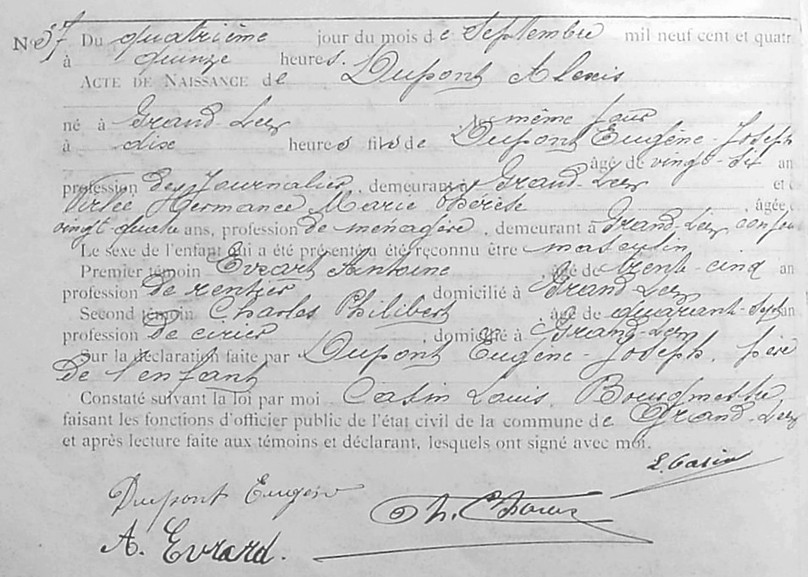 No 37 Du quatrième jour du mois de Septembre mil neuf cent et quatr
à quinze heures.
ACTE DE NAISSANCE de Dupont Alexis
né à Grand-Leez même jour
à dix heures fils de Dupont Eugène-Joseph
âgé de vingt-six an
profession de Journalier, demeurant à Grand-Leez et
Hermance Marie Thérèse, âgée
vingt quatre ans, profession de ménagère, demeurant à Grand-Leez conjou
Le sexe de l'enfant qui a été présenté a été reconnu être masculin
Premier témoin Evrart Antoine, âgé de trente-cinq an
profession de rentier domicilié à Grand-Leez
Second témoin Charles Philibert, âgé de quarant-sept an
profession de cirier, domicilié à Grand-Leez
Sur la déclaration faite par Dupont Eugène-Joseph, père
de l'enfant
Constaté suivant la loi par moi Casin Louis Bourgmestre
faisant les fonctions d'officier public de l'état civil de la commune de Grand-Leez
et après lecture faite aux témoins et déclarant, lesquels ont signé avec moi.
L. Casin
Dupont Eugène
Ph.
A. Evrard.